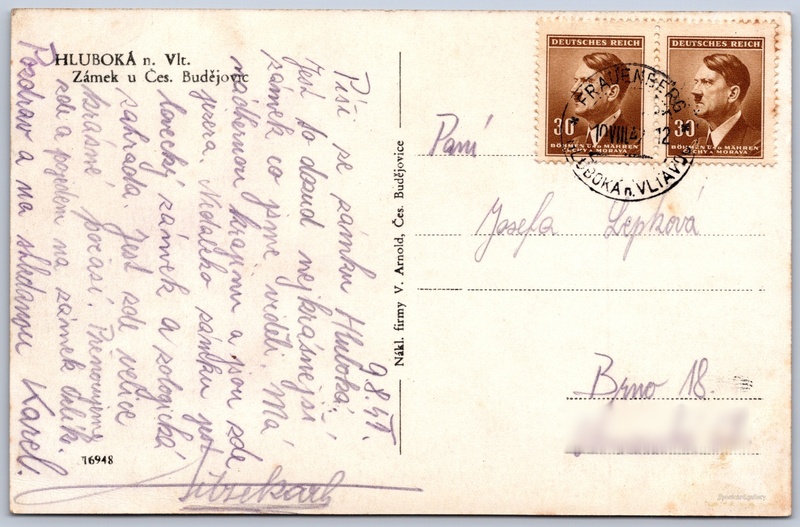 HLUBOKÁ n. Vlt.
Zámek u Čes. Budějovic
9.8.
Píši ze zámku Hluboká.
Jest to dosud nejkrásnější
zámek co jsme viděli. Má
nádhernou krajinu a jsou zde
jezera. Nedaleko zámku jest
lovecký zámek a zologická
zahrada. Jest zde velice
krásné počasí. Přenocujeme
zde a pojedem na zámek
Pozdrav a na shledanou Karel.
16948
Nákl. firmy V. Arnold, Čes. Budějovice
DEUTSCHES REICH
30
BÖHMEN u. MÄHREN
ČECHY a MORAVA
DEUTSCHES REICH
30
BÖHMEN u. MÄHREN
ČECHY a MORAVA
* FRAUENBERG *
10 VIII 12
HLUBOKÁ n. VLTAVOU
Paní
Josefa Lepková
Brno 18.